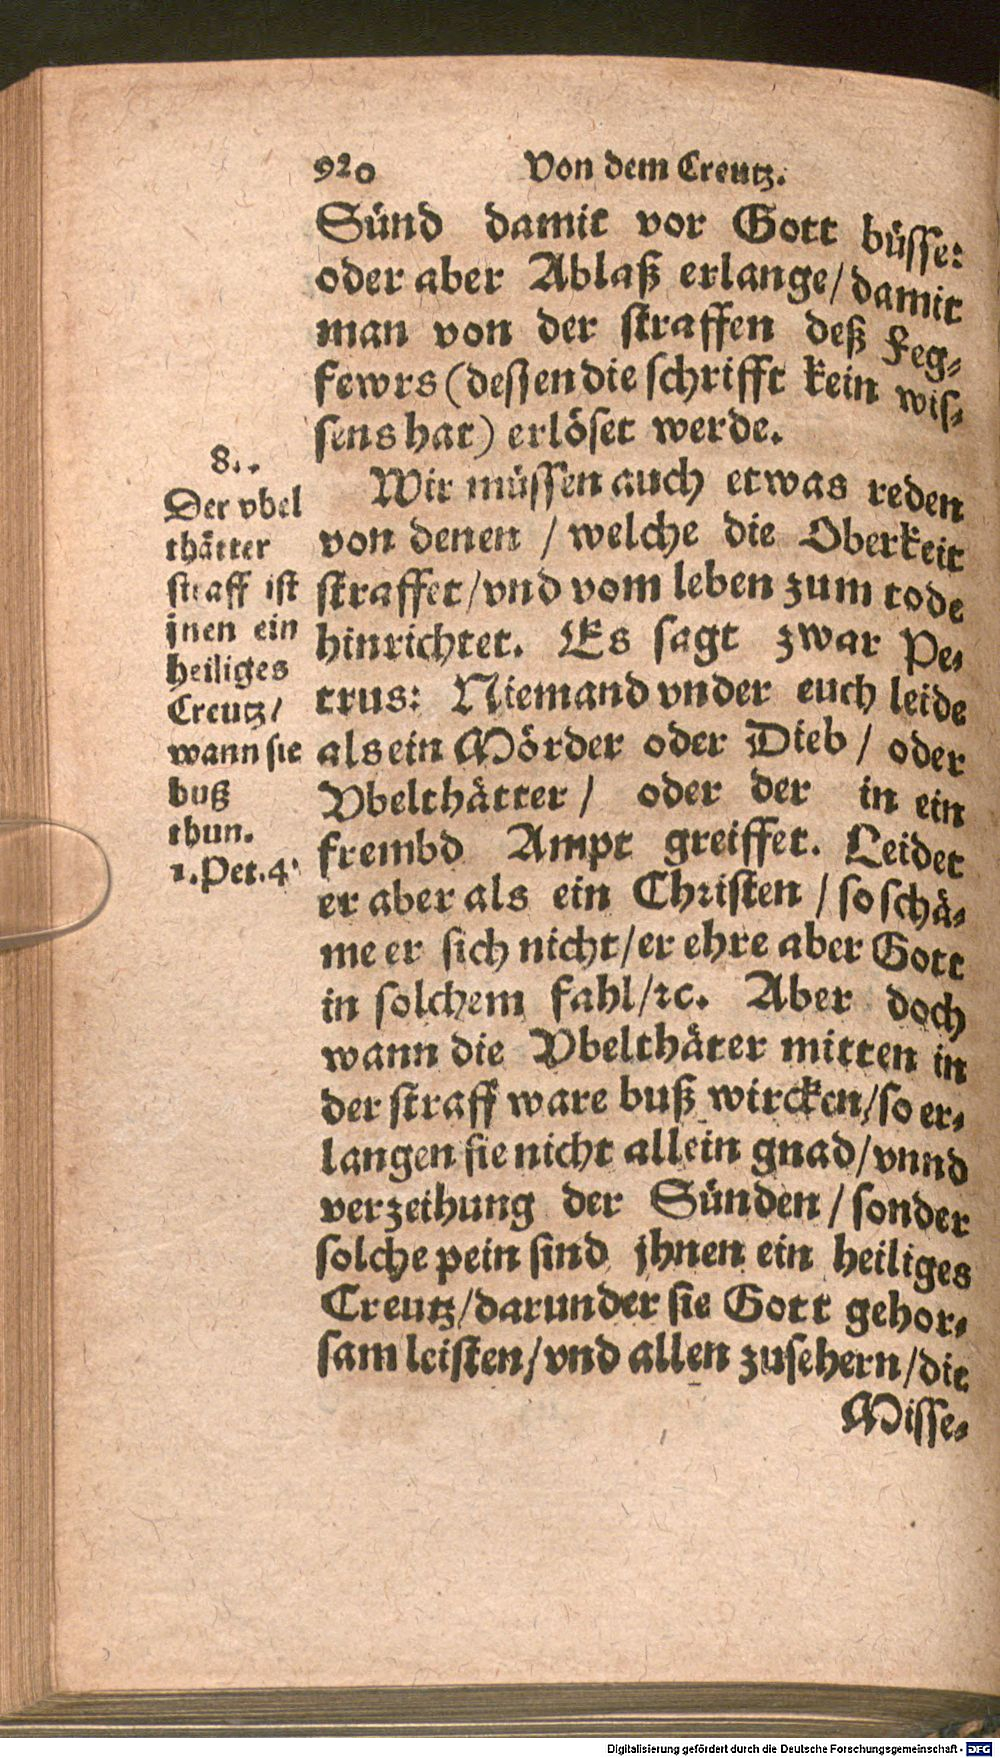 920 Von dem Creutz.
Sünd damit vor Gott büsse:
oder aber Ablaß erlange/ damit
man von der straffen deß Feg-
fewrs (dessen die schrifft kein wis-
sens hat) erlöset werde.
Wir müssen auch etwas reden
von denen / welche die Oberkeit
straffet/ vnd vom leben zum tode
hinrichtet. Es sagt zwar Pe-
trus: Niemand vnder euch leide
als ein Mörder oder Dieb / oder
Vbelthätter / oder der in ein
frembd Ampt greiffet. Leidet
er aber als ein Christen / so schä-
me er sich nicht/ er ehre aber Gott
in solchem fahl/ ꝛc. Aber doch
wann die Vbelthäter mitten in
der straff ware buß wircken/ so er-
langen sie nicht allein gnad/ vnnd
verzeihung der Sünden / sonder
solche pein sind jhnen ein heiliges
Creutz/ darunder sie Gott gehor-
sam leisten/ vnd allen zusehern/ die
Misse-
8.
Der vbel
thätter
straff ist
jnen ein
heiliges
Creutz/
wann sie
buß
thun.
1. Pet. 4.
Digitalisierung gefördert durch die Deutsche Forschungsgemeinschaft - DFG